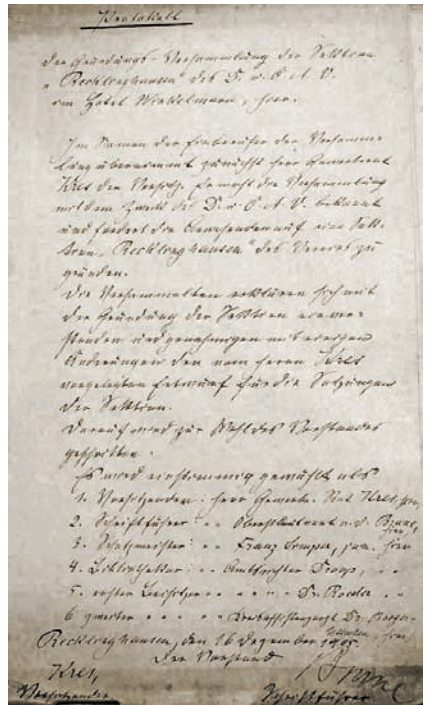 Protokoll
der Gründungs-Versammlung der Sektion
„Recklinghausen" des D. u. Ö. A. V.
im Hotel Winkelmann, hier.
Im Namen der Einberufer der Versamm-
lung übernimmt zunächst Herr Gewerberat
Kres den Vorsitz. Er macht die Versammlung
mit dem Zweck des D. u. Ö. A. V. bekannt
und fordert die Anwesenden auf eine Sek-
tion „Recklinghausen" des Vereins zu
gründen.
Die Versammelten erklären sich mit
der Gründung der Sektion einver-
standen und genehmigen mit einigen
Änderungen den vom Herrn Kres
vorgelegten Entwurf für die Satzungen
der Sektion.
Darauf wird zur Wahl des Vorstandes
geschritten.
Es wird einstimmig gewählt als
1. Vorsitzenden: Herr Gewerbe-Rat Kres, hier,
2. Schriftführer: " " Oberstleutnant a. D. hier
3. Schatzmeister: " " Franz jun. hier
4. Bibliothekar: " " Amtsrichter
5. erster Beisitzer " " " " Dr.
6 zweiter " " " " Dr. hier
Recklinghausen, den 16 Dezember 1905.
Der Vorstand
Kres,
Vorsitzender Schriftführer